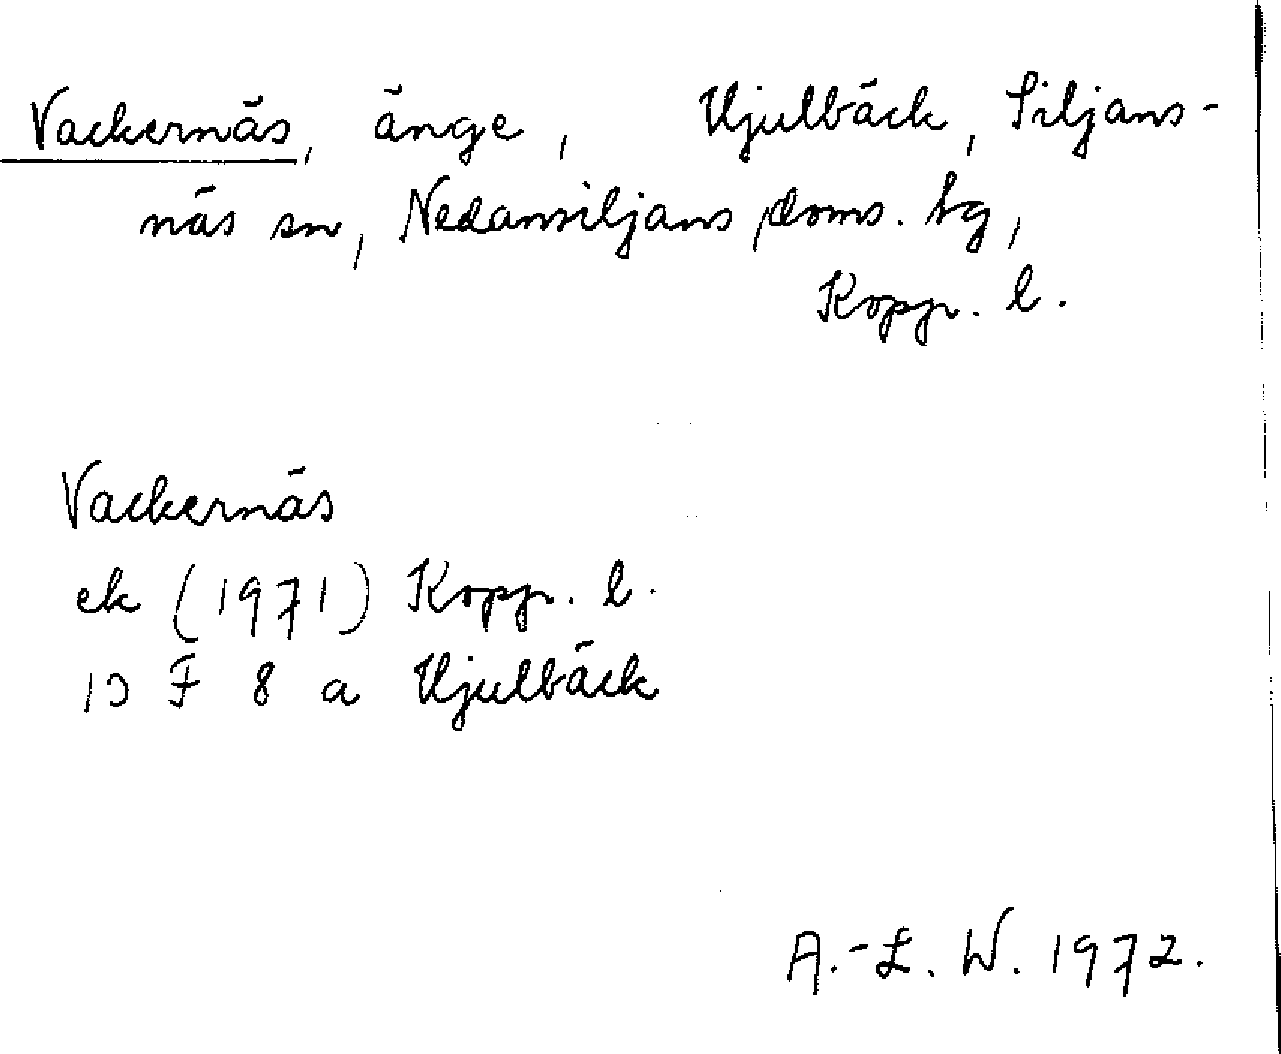 Vackernäs, änge, Hjulbäck, Siljans-
näs sn, Nedansiljans doms. tg,
Kopp. l.
Vackernäs
ek (1971) Kopp. l.
13 F 8 a Hjulbäck
A.-L. W. 1972.